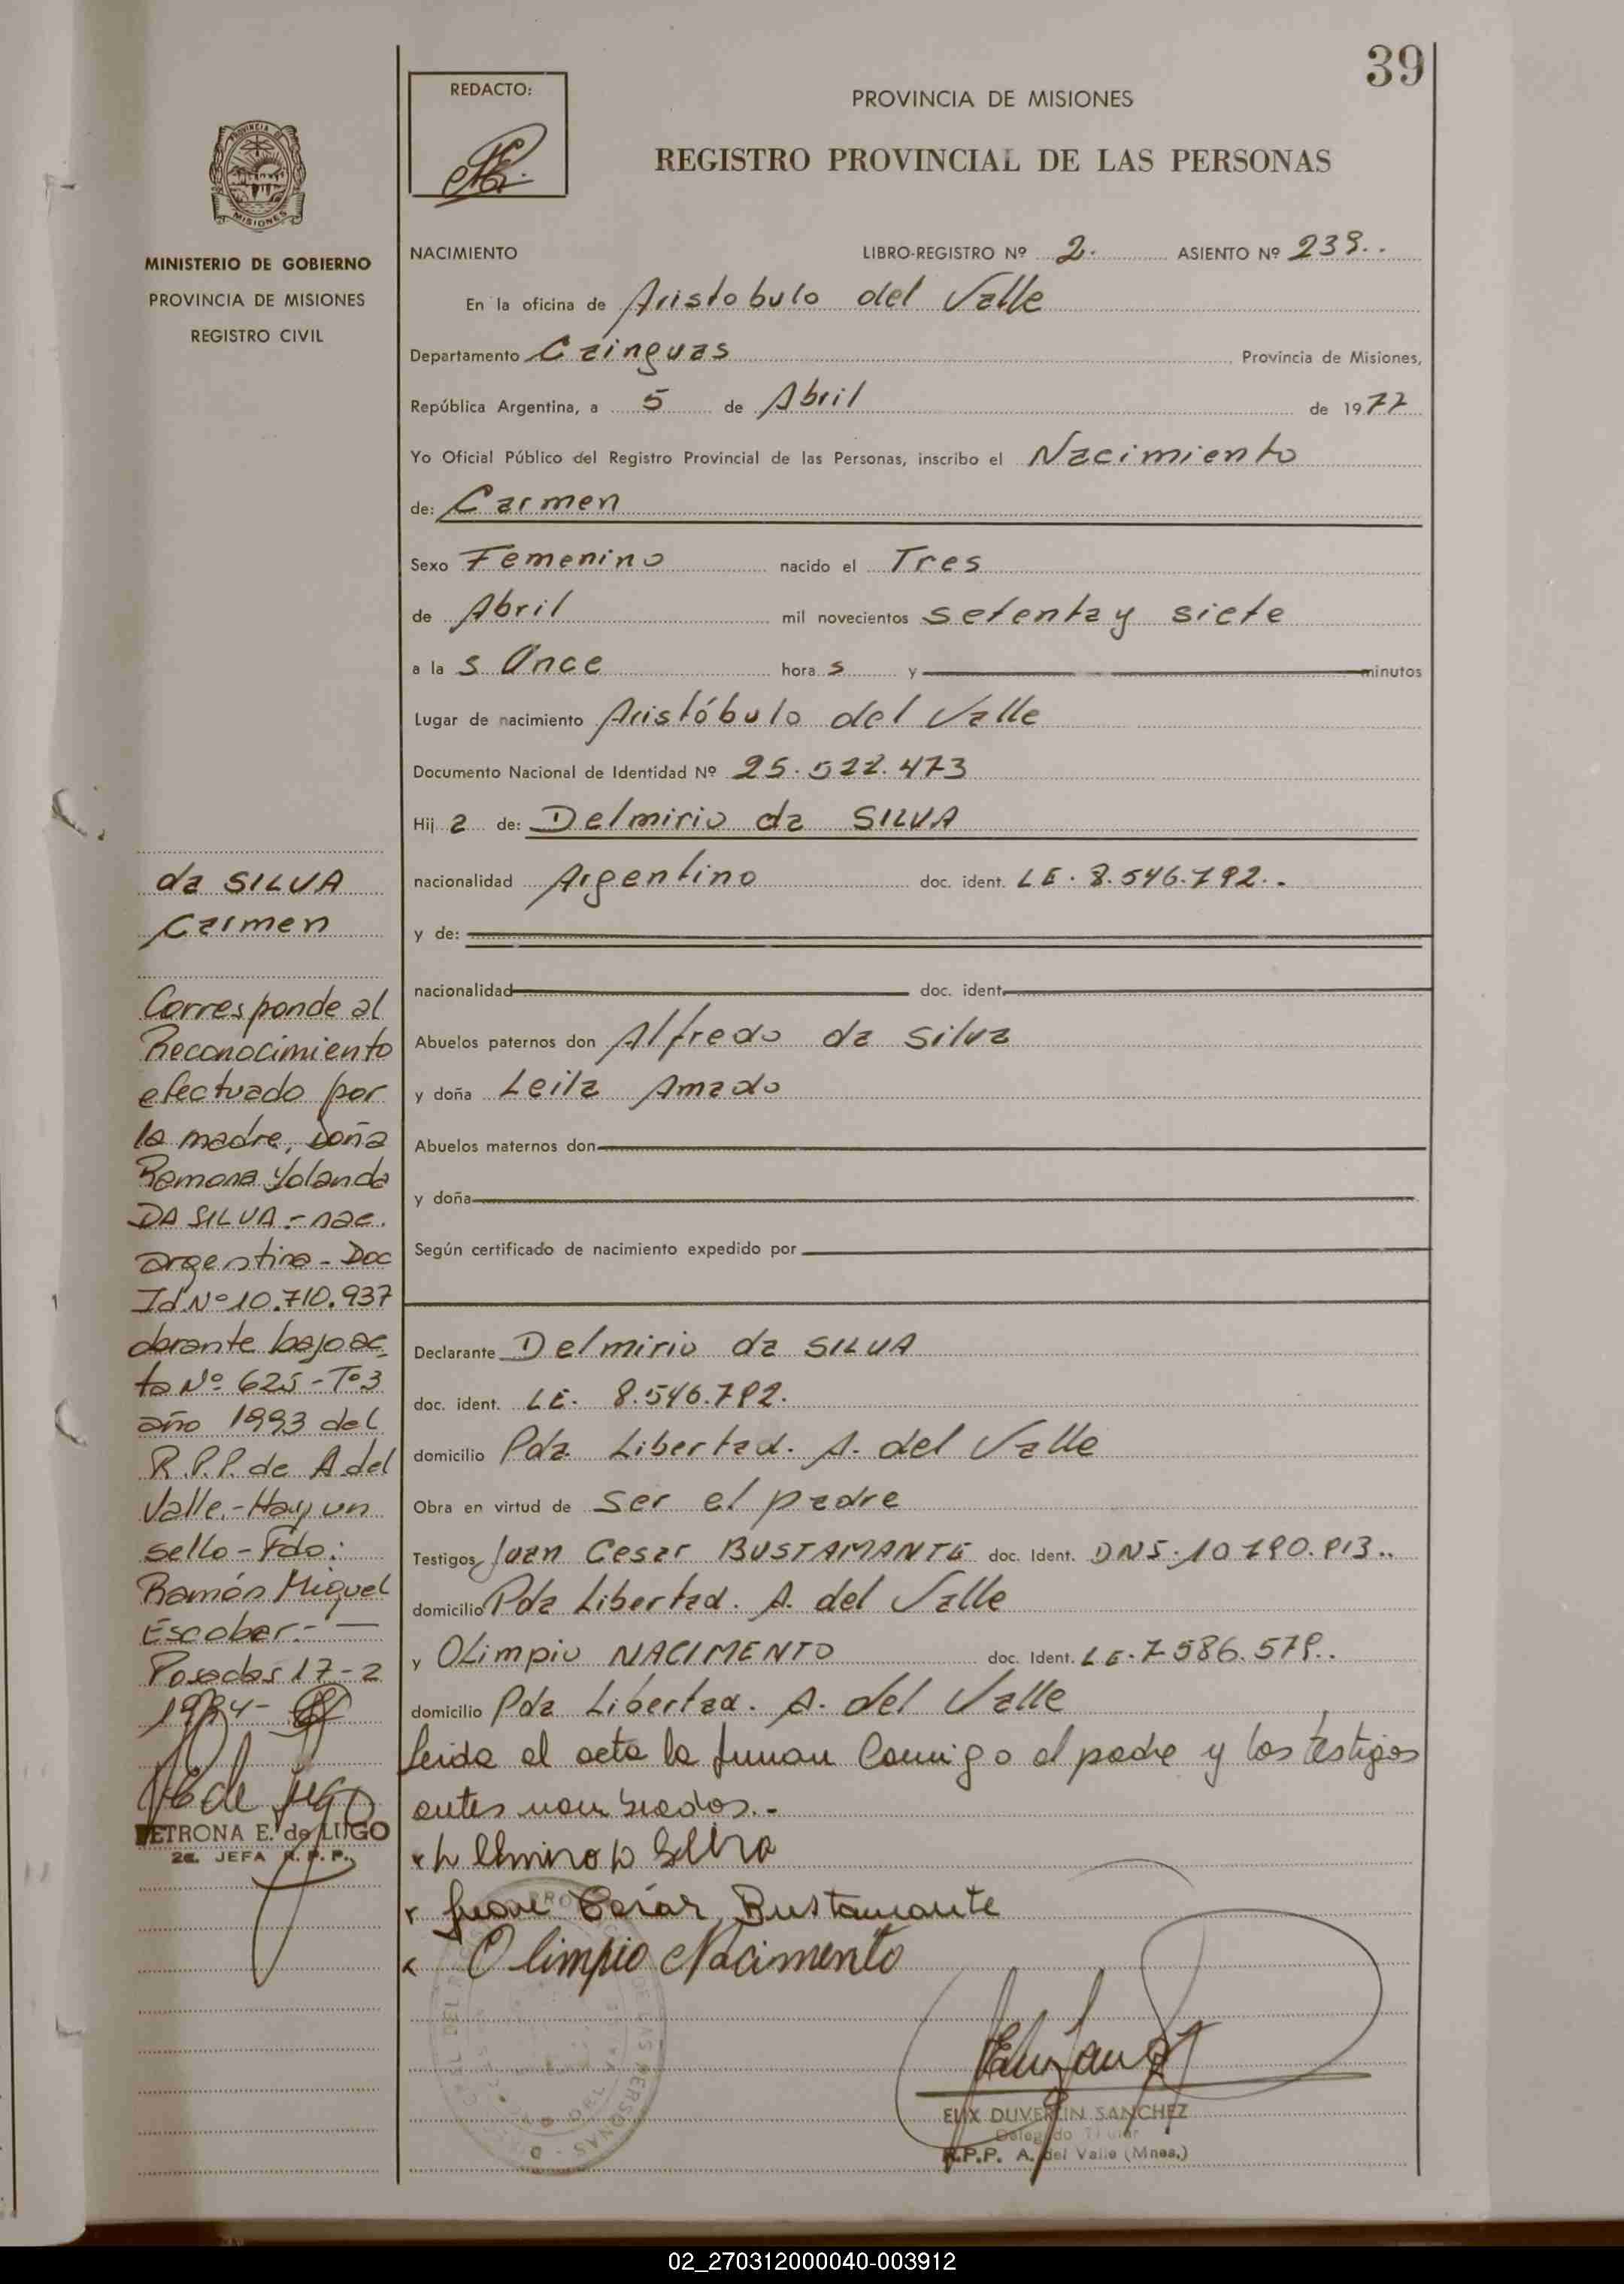 39
REDACTO:
PROVINCIA DE MISIONES
REGISTRO PROVINCIAL DE LAS PERSONAS
PROVINCIA DE
MISIONES
MINISTERIO DE GOBIERNO
PROVINCIA DE MISIONES
REGISTRO CIVIL
NACIMIENTO LIBRO-REGISTRO Nº 2. ASIENTO Nº 239..
En la oficina de Aristobulo del Valle
Departamento Cainguas Provincia de Misiones,
República Argentina, a 5 de Abril de 1977
Yo Oficial Público del Registro Provincial de las Personas, inscribo el Nacimiento
de: Carmen
Sexo Femenino nacido el Tres
de Abril mil novecientos setenta y siete
a la s Once hora s y minutos
Lugar de nacimiento Aristóbulo del Valle
Documento Nacional de Identidad Nº 25.522.473
Hij a de: Delmirio da SILVA
nacionalidad Argentino doc. ident. LE. 8.546.792..
y de:
nacionalidad doc. ident.
Abuelos paternos don Alfredo da Silva
y doña Leila Amado
Abuelos maternos don
y doña
Según certificado de nacimiento expedido por
Declarante Delmirio da SILVA
doc. ident. LE. 8.546.792.
domicilio Pda Libertad. A. del Valle
Obra en virtud de ser el padre
Testigos Juan Cesar BUSTAMANTE doc. Ident. DNI. 10.790.913..
domicilio Pda Libertad. A. del Valle
y OLimpio NACIMENTO doc. Ident. LE. 7.586.579..
domicilio Pda Libertad. A. del Valle
Leida el acta la firman Conmigo el padre y los testigos
antes nombrados.-
Juan Cesar Bustamante
Olimpio Nacimento
ELIX DUVERLIN SANCHEZ
Delegado Titular
R.P.P. A. del Valle (Mnes.)
da SILVA
Carmen
Corresponde al
Reconocimiento
efectuado por
la madre, Doña
Ramona Yolanda
DA SILVA.- nac.
argentina - Doc
Id Nº 10.710.937
obrante bajo ac
ta Nº 625 - Tº 3
año 1993 del
R.P.P. de A. del
Valle.- Hay un
sello - Fdo:
Ramón Miguel
Escobar.-
Posadas 17-2
1994-
PETRONA E. de LUGO
2a. JEFA R.P.P.
02_270312000040-003912